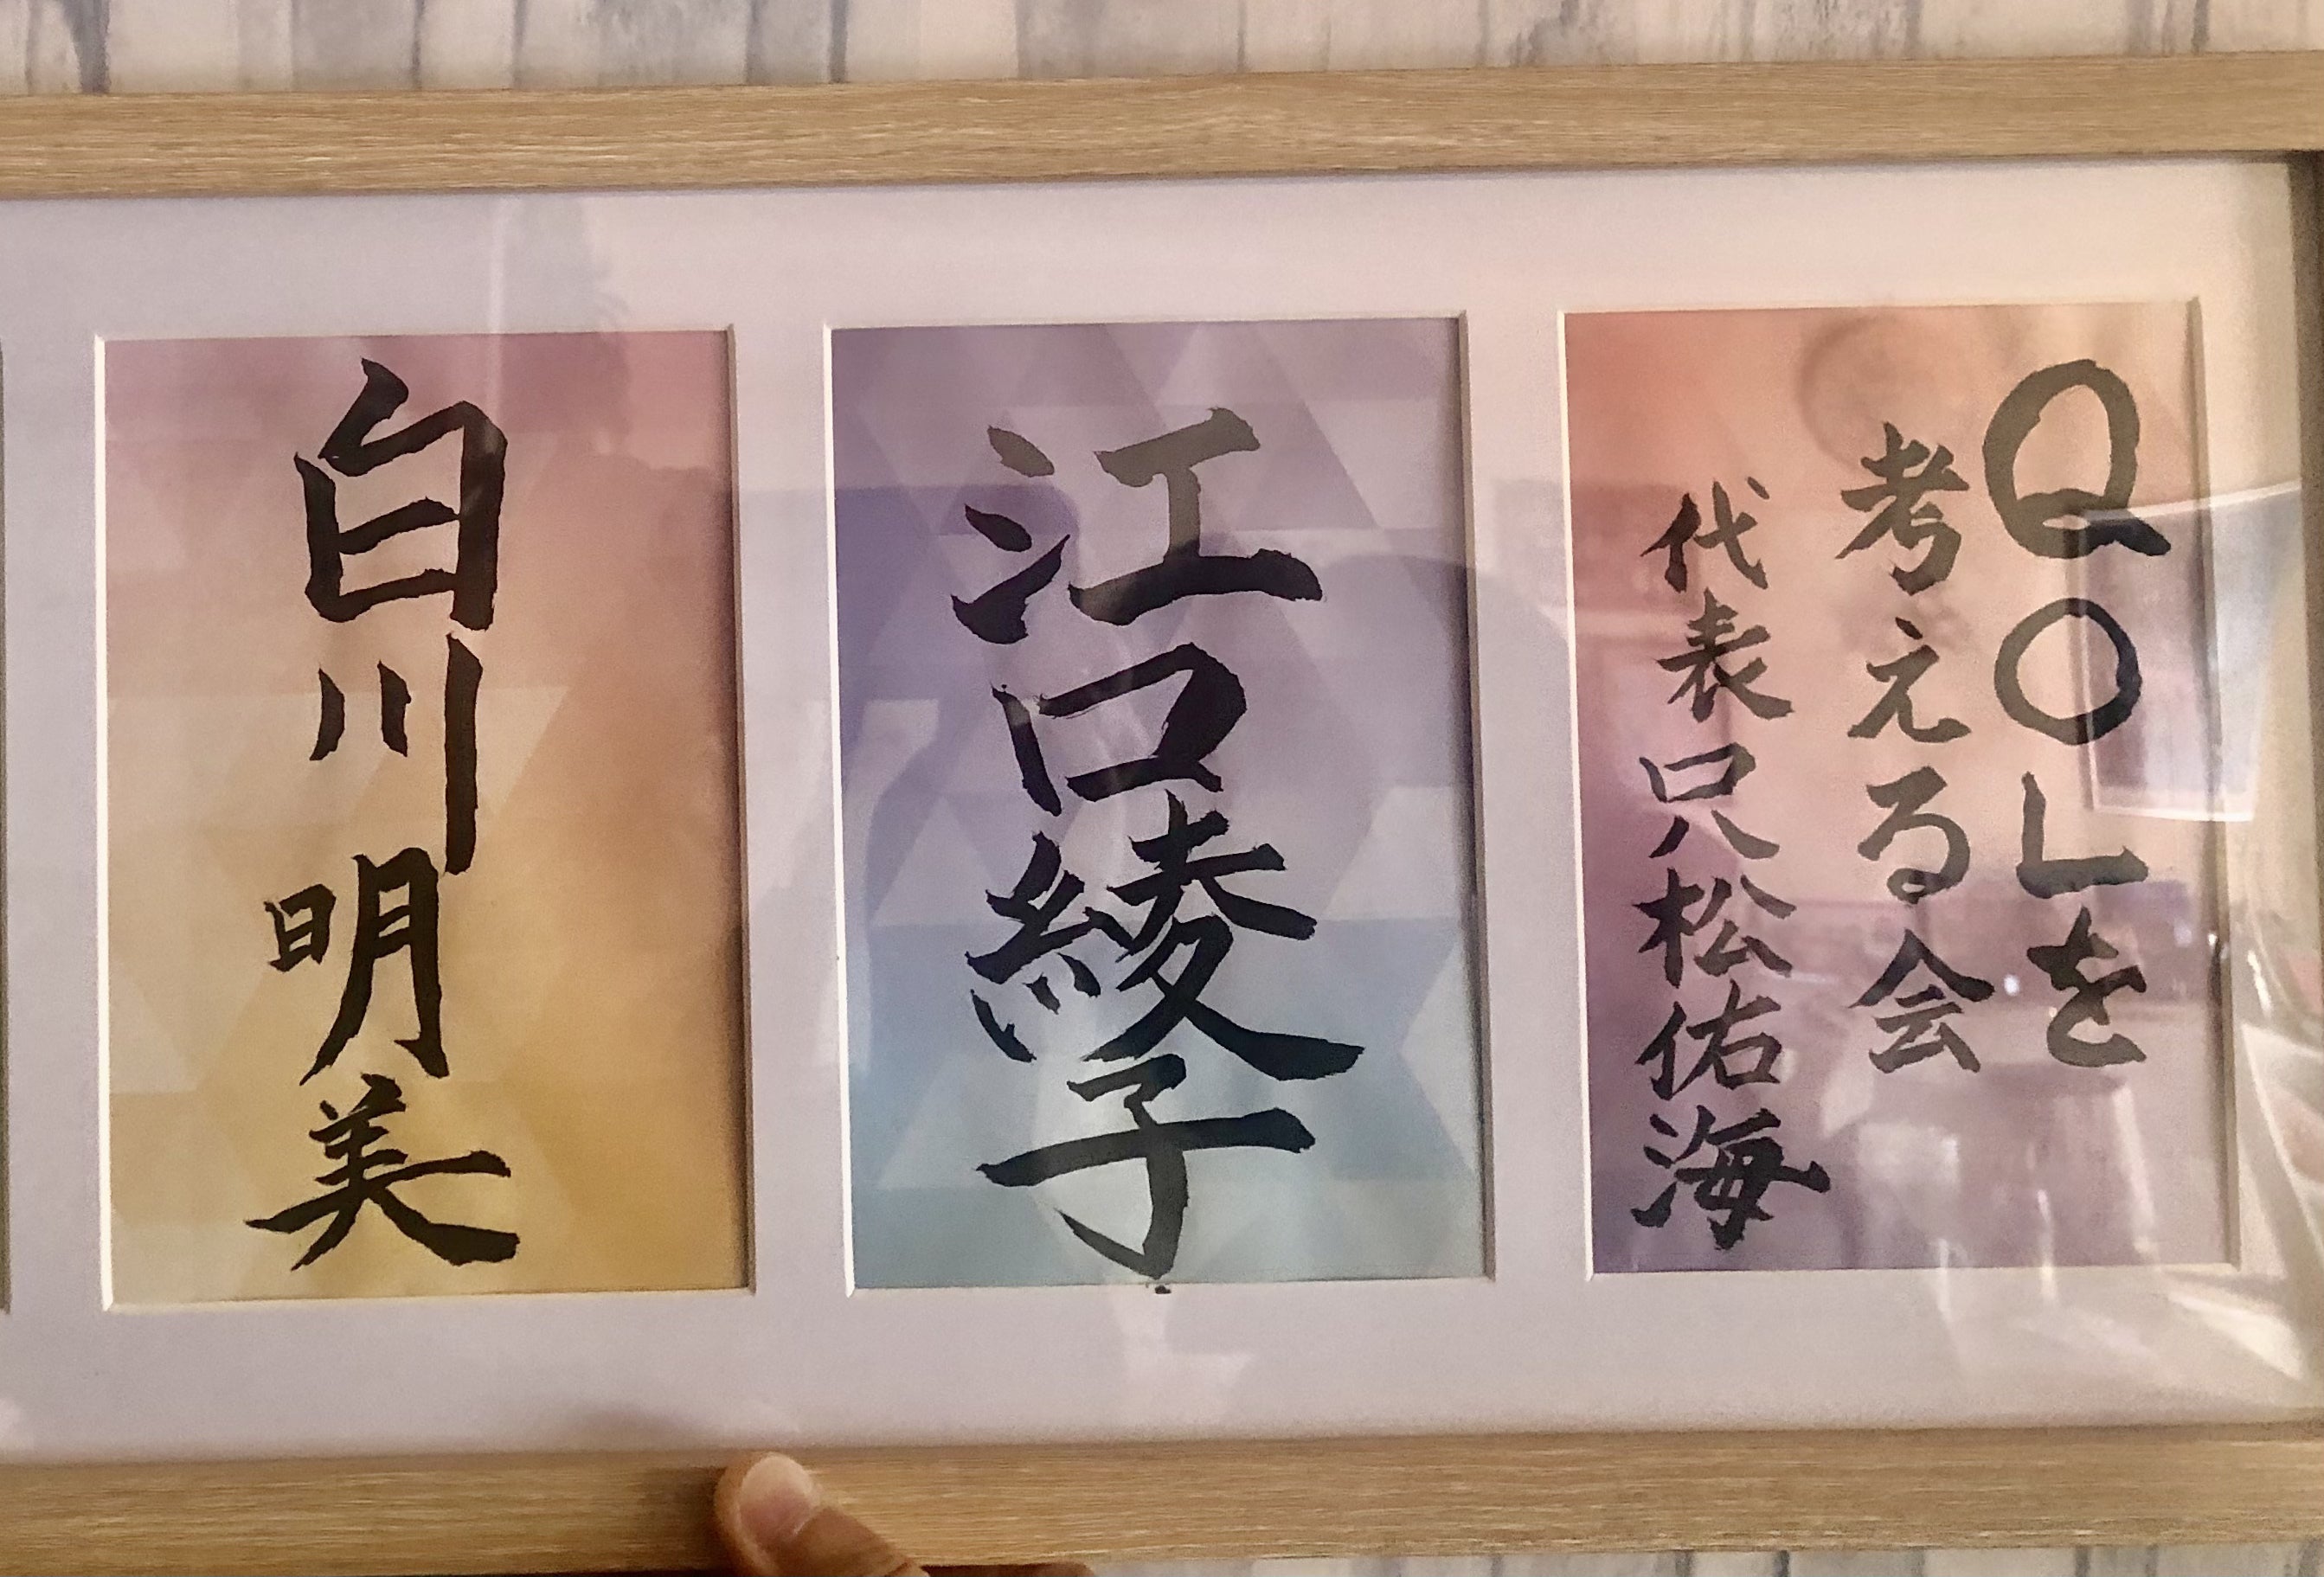 QOLを
考える会
代表只松佑海
江口綾子
白川明美